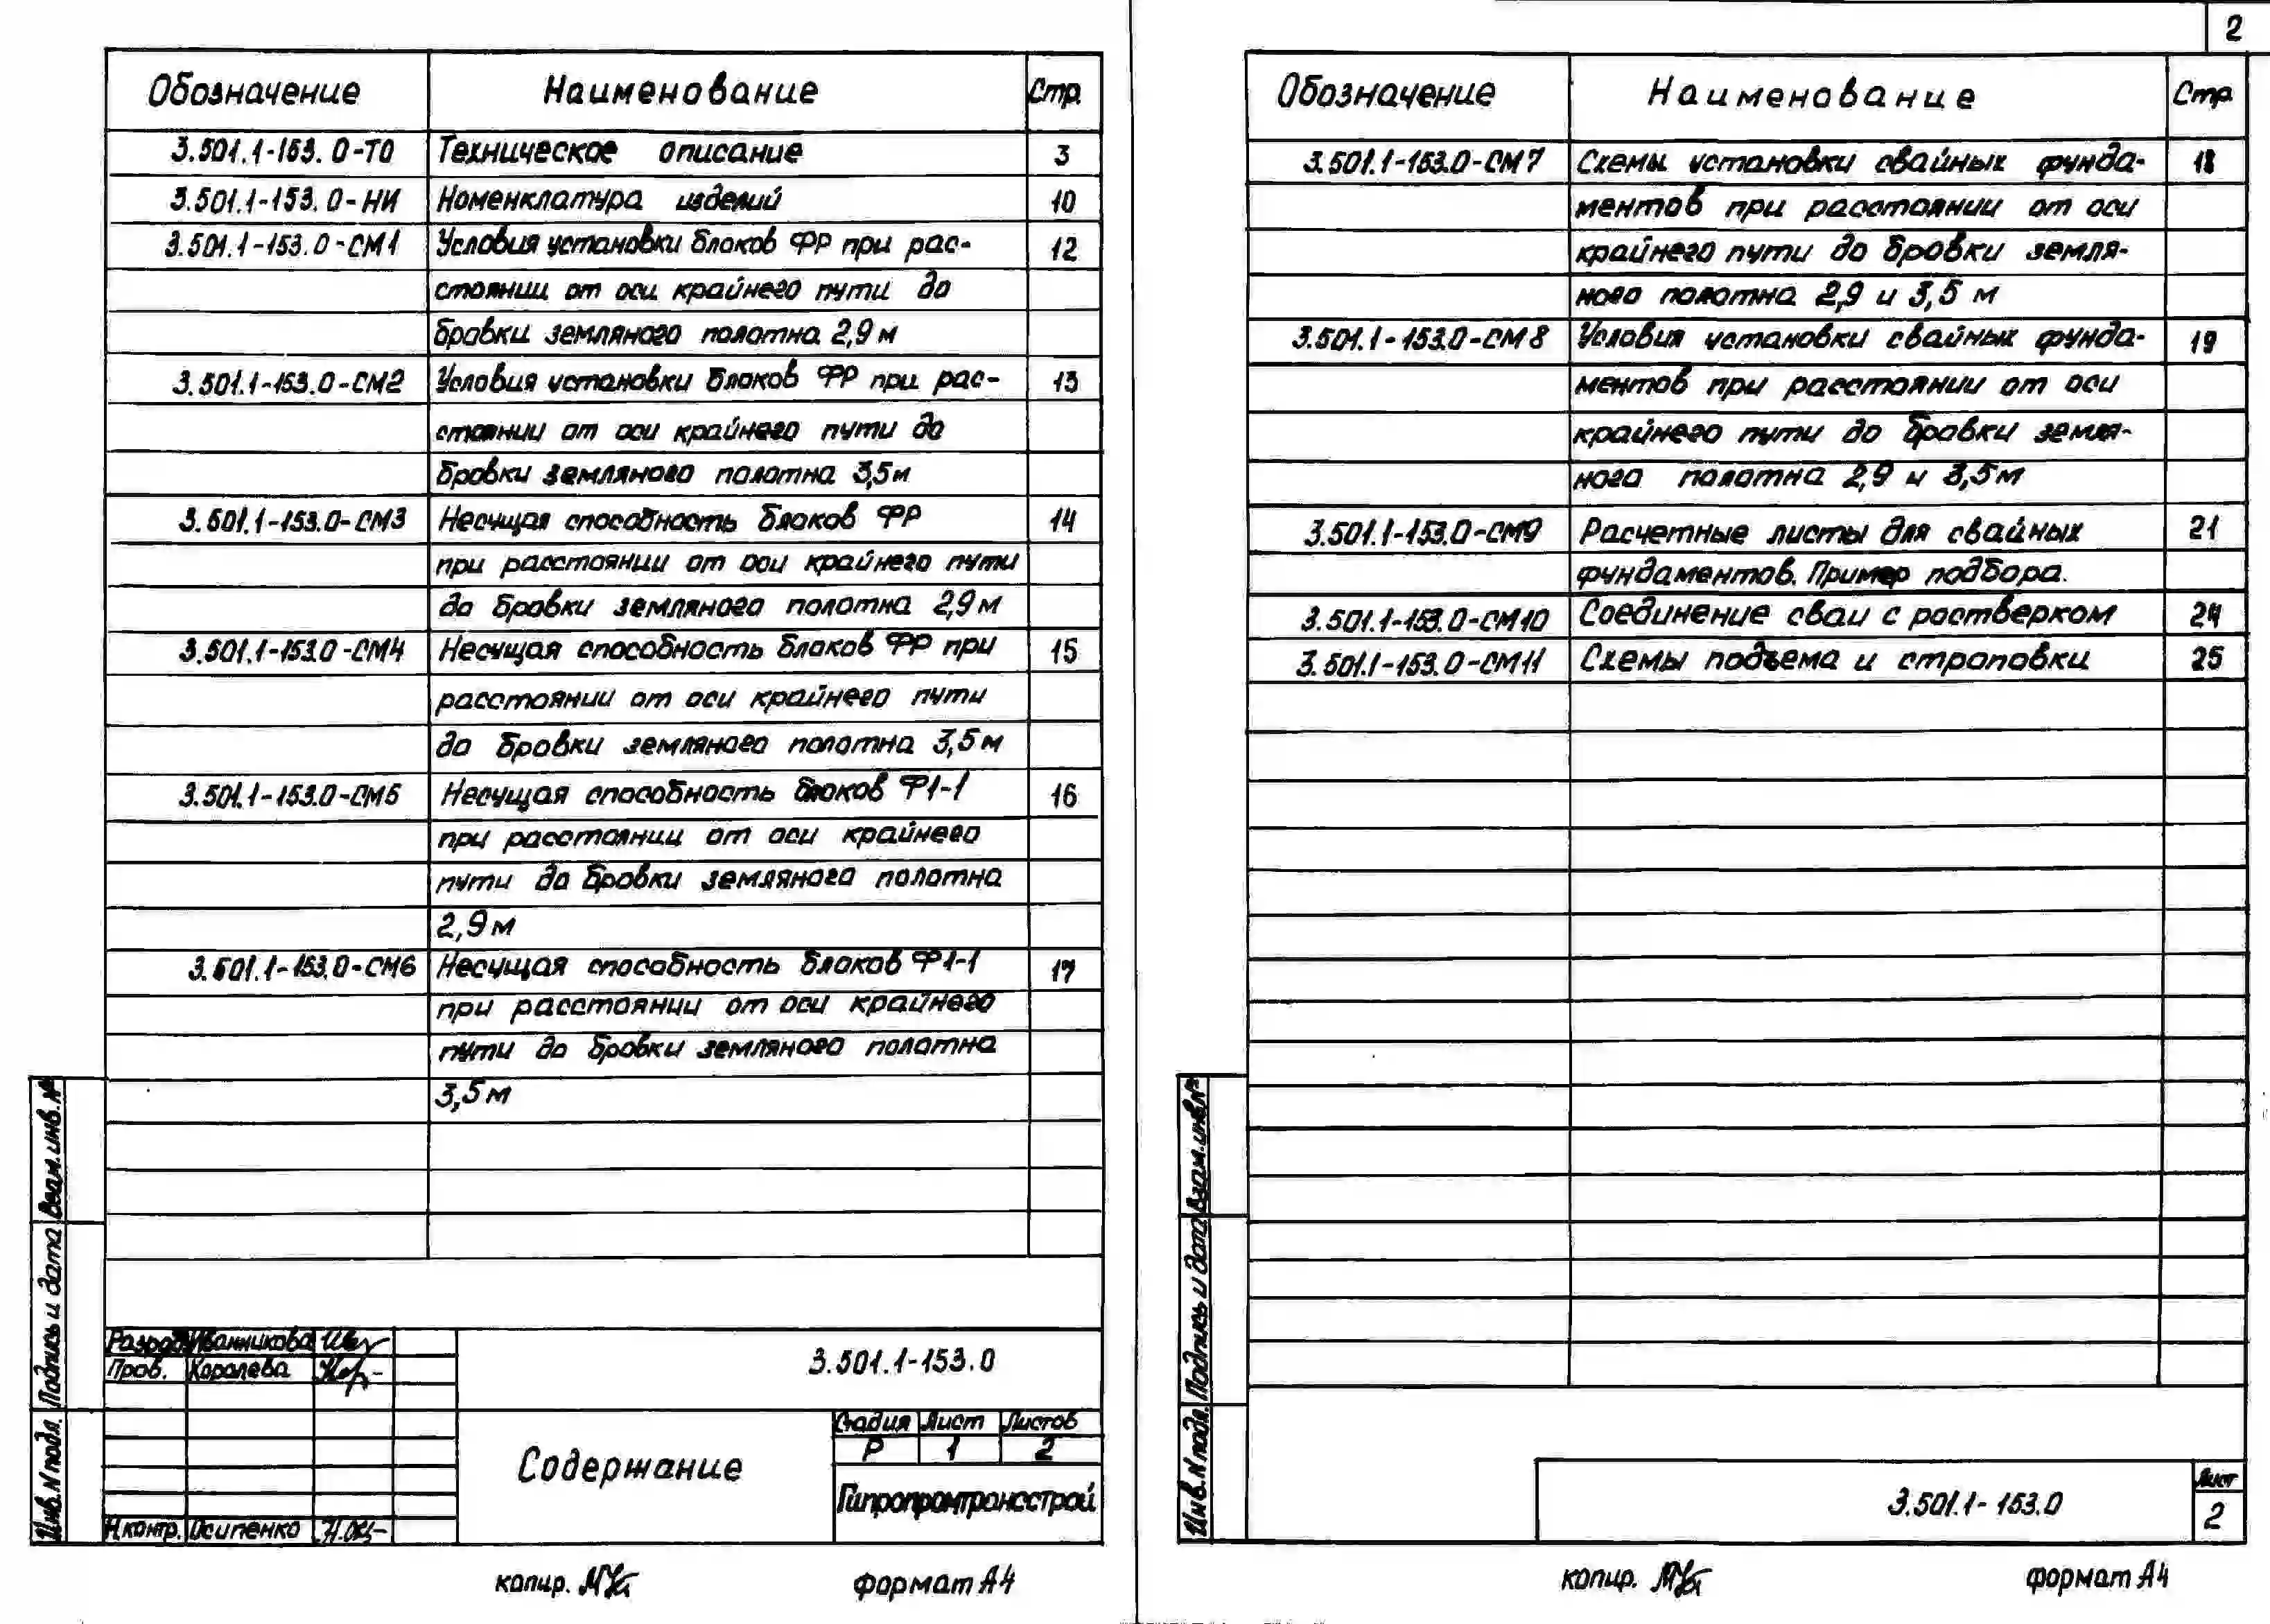 Обозначение Наименование Стр.
3.501.1-153.0-ТО Техническое описание 3
3.501.1-153.0-НИ Номенклатура изделий 10
3.501.1-153.0-СМ1 Условия установки блоков ФР при рас- 12
стоянии от оси крайнего пути до
бровки земляного полотна 2,9 м
3.501.1-153.0-СМ2 Условия установки блоков ФР при рас- 13
стоянии от оси крайнего пути до
бровки земляного полотна 3,5 м
3.501.1-153.0-СМ3 Несущая способность блоков ФР 14
при расстоянии от оси крайнего пути
до бровки земляного полотна 2,9 м
3.501.1-153.0-СМ4 Несущая способность блоков ФР при 15
расстоянии от оси крайнего пути
до бровки земляного полотна 3,5 м
3.501.1-153.0-СМ5 Несущая способность блоков Ф1-1 16
при расстоянии от оси крайнего
пути до бровки земляного полотна
2,9 м
3.501.1-153.0-СМ6 Несущая способность блоков Ф1-1 17
при расстоянии от оси крайнего
пути до бровки земляного полотна
3,5 м
Взам. инв. №
Подпись и дата
Инв. N подл.
Разраб. Иванникова
Пров. Королева
Н.контр. Осипенко
3.501.1-153.0
Содержание
Стадия Лист Листов
Р 1 2
Гипропромтрансстрой
копир.
формат А4
2
Обозначение Наименование Стр.
3.501.1-153.0-СМ7 Схемы установки свайных фунда- 18
ментов при расстоянии от оси
крайнего пути до бровки земля-
ного полотна 2,9 и 3,5 м
3.501.1-153.0-СМ8 Условия установки свайных фунда- 19
ментов при расстоянии от оси
крайнего пути до бровки земля-
ного полотна 2,9 и 3,5 м
3.501.1-153.0-СМ9 Расчетные листы для свайных 21
фундаментов. Пример подбора.
3.501.1-153.0-СМ10 Соединение сваи с ростверком 24
3.501.1-153.0-СМ11 Схемы подъема и строповки 25
Взам. инв. №
Подпись и дата
Инв. N подл.
3.501.1-153.0
Лист
2
копир.
формат А4